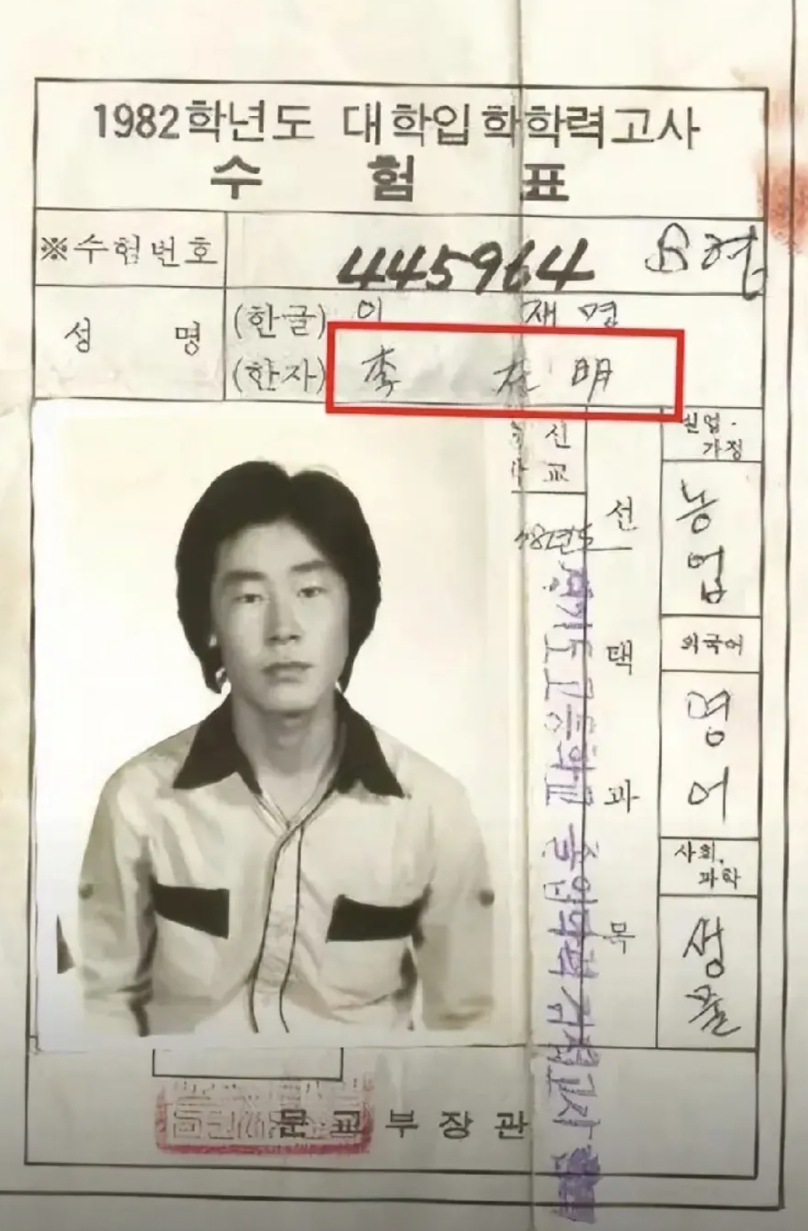 1982학년도 대학입학학력고사
수 험 표
※수험번호 445964 B형
성 명 (한글) 이 재 명
(한자) 李 在 明
출신
학교
선 택 과 목
실업·
가정
농업
외국어
영어
사회,
과학
생물
문교부장관